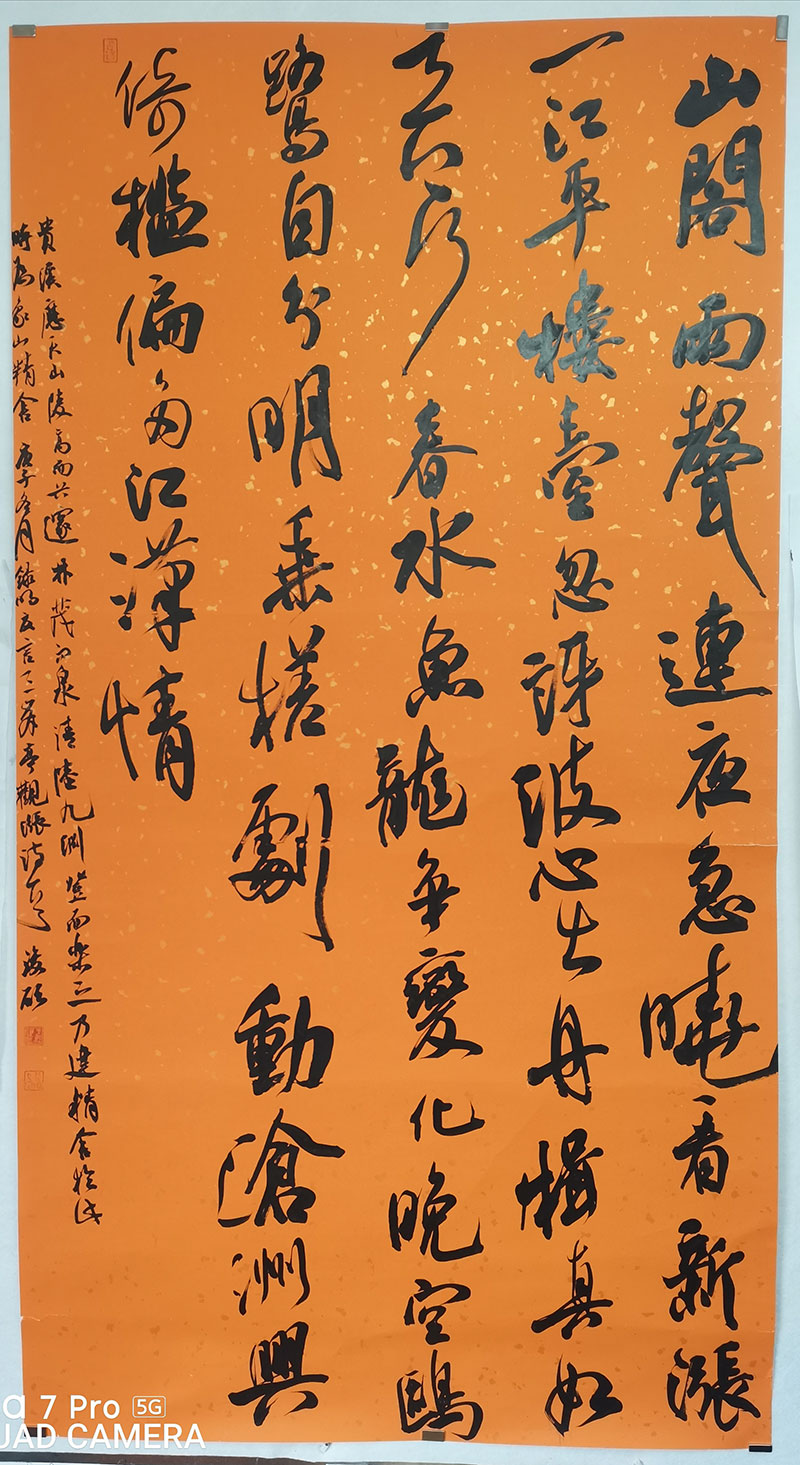 山閣雨聲連夜急曉看新漲
一江平樓臺忽訝波心出舟楫真如
天上行春水魚龍爭變化晚空鷗
鷺自分明乘槎劇動滄洲興
倚檻偏多江漢情
貴溪應天山陵高而谷邃林茂而泉清陸九淵登而樂之乃建精舍於此
時為象山精舍 庚子冬月錄明夏言亭觀漲詩
a 7 Pro 5G
UAD CAMERA